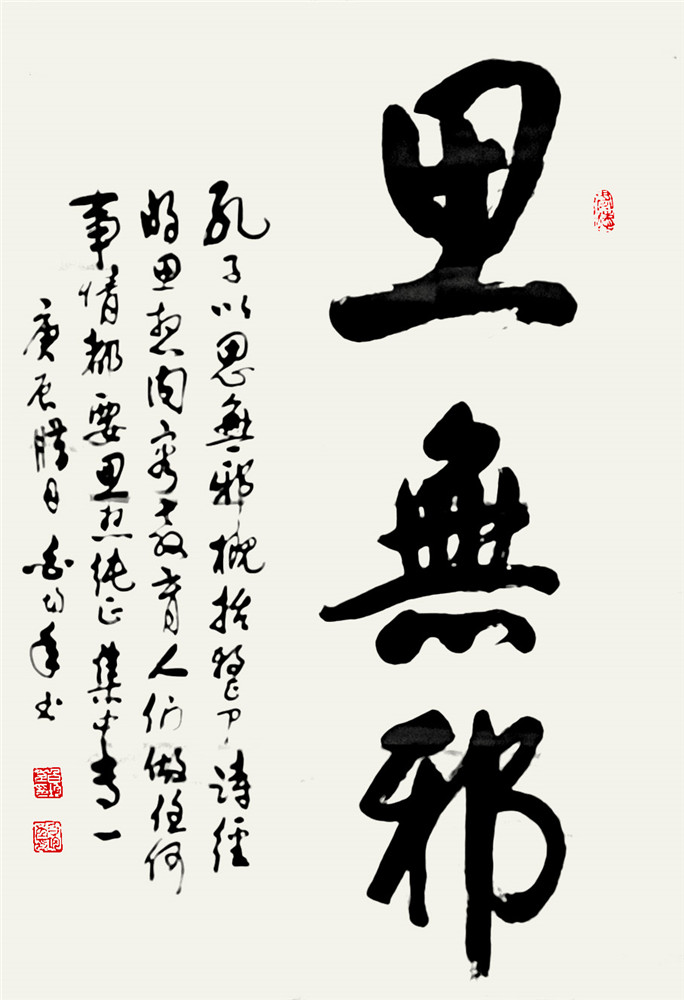 思無邪
孔子以思無邪概括整个詩經
的思想内容教育人们做任何
事情都要思想純正集中专一
庚辰腊月 年书